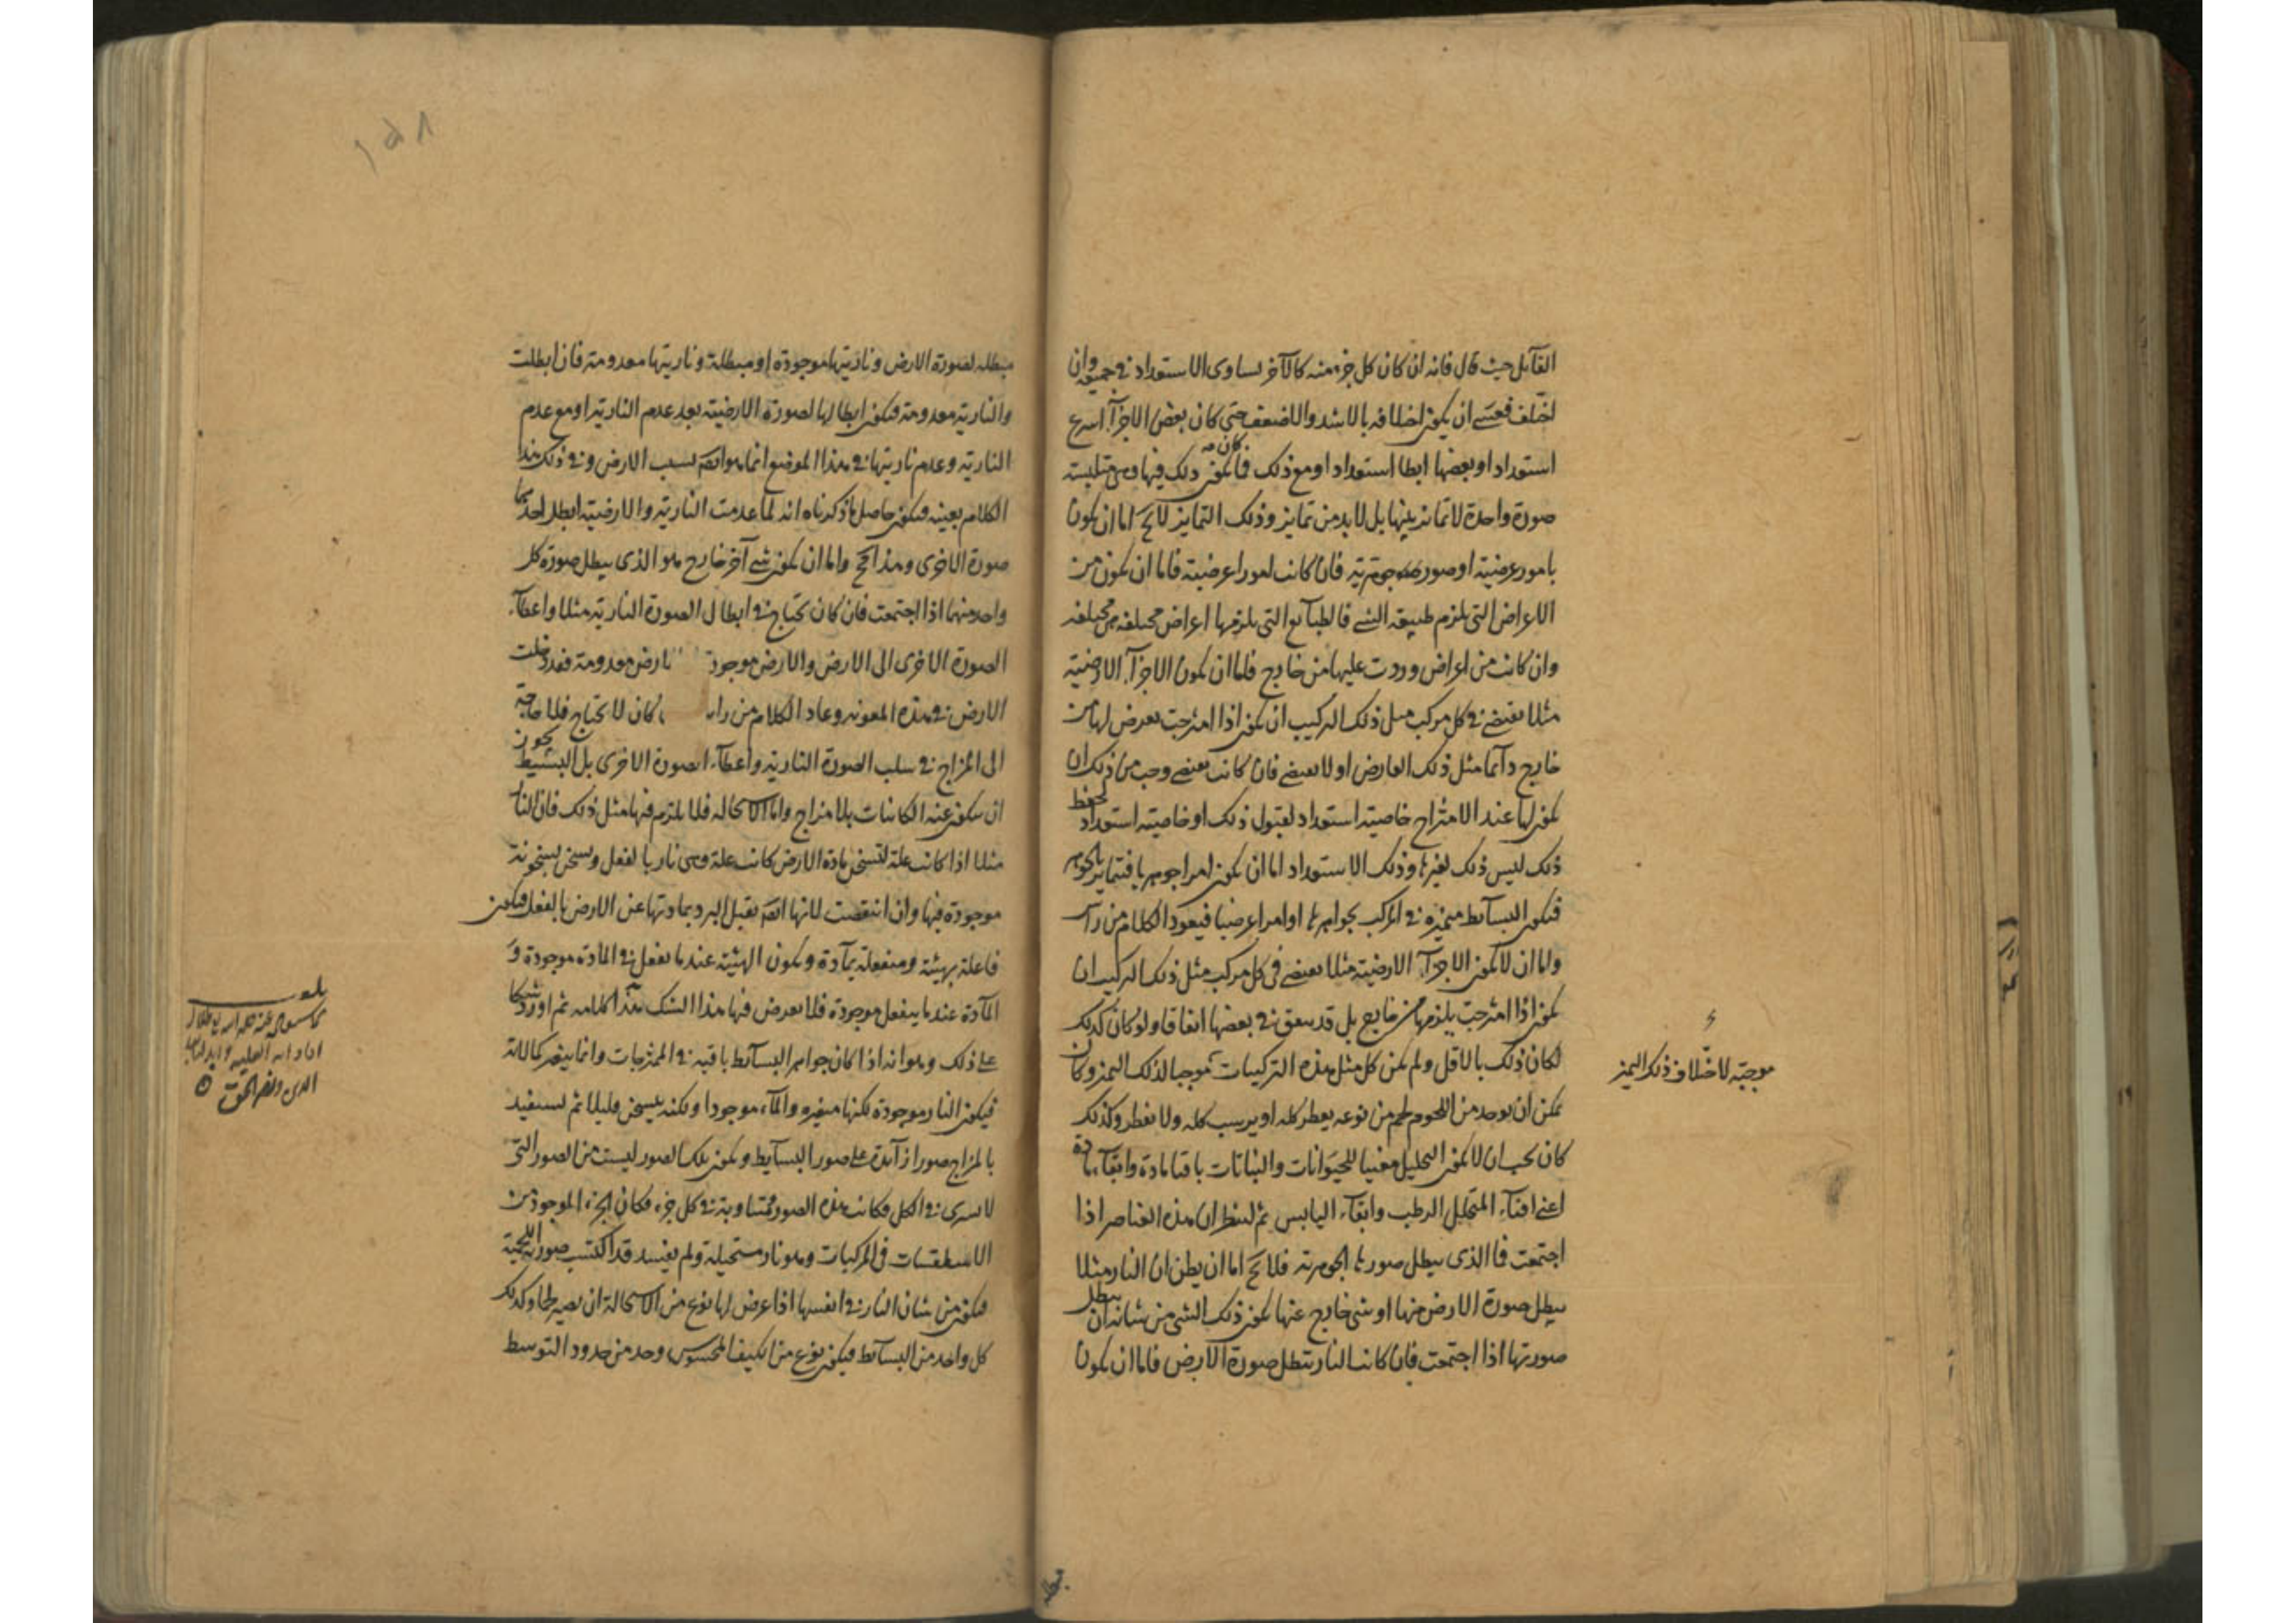 القآئل حيث قال فانه ان كان كل جزء منه كالآخر تساوى الاستعداد فى جميعه وان
اختلف فعسى ان يكون اختلافه بالاشد والاضعف حتى كان بعض الاجزآء اسرع
استعدادا وبعضها ابطا استعدادا ومع ذلك فما كان يكون ذلك فيها وهى متلبسة
صورة واحدة لا تمايز بينها بل لا بد من تمايز وذلك التمايز لا يخ اما ان يكون
بامور عرضية او صور جوهرية فان كانت امورا عرضية فاما ان يكون من
الاعراض التى يلزم طبيعة الشىء فالطبآئع التى يلزمها اعراض مختلفة هى مختلفة
وان كانت من اعراض وردت عليها من خارج فاما ان يكون الاجزآء الارضية
مثلا يقتضى فى كل مركب مثل ذلك التركيب ان يكون اذا امتزجت يعرض لها من
خارج دآئما مثل ذلك العارض او لا يقتضى فان كانت يقتضى وجب من ذلك ان
يكون لها عند الامتزاج خاصية استعداد لقبول ذلك او خاصية استعداد لحفظ
ذلك ليس ذلك لغيرها وذلك الاستعداد اما ان يكون امرا جوهريا فتمايز بالجوهر
فيكون البسآئط متميزة فى المركب بجواهرها او امرا عرضيا فيعود الكلام من راس
واما ان لا يكون الاجزآء الارضية مثلا يقتضى فى كل مركب مثل ذلك التركيب ان
يكون اذا امتزجت يلزمها من خارج بل قد يتفق فى بعضها اتفاقا ولو كان كذلك
لكان ذلك بالاقل ولم يكن كل مثل هذه التركيبات موجبا لذلك التميز وكان
موجبة لاختلاف ذلك التميز
يمكن ان يوجد من اللحوم لحم من نوعه يقطر كله او يرسب كله ولا يقطر وكذلك
كان يجب ان لا يكون التحليل مفنيا للحيوانات والنباتات بافنا مادة وابقآء مادة
اعنى افنآء المتحلل الرطب وابقآء اليابس ثم لننظر ان هذه العناصر اذا
اجتمعت فما الذى يبطل صورها الجوهرية فلا يخ اما ان يظن ان النار مثلا
يبطل صورة الارض منها او شئ خارج عنها يكون ذلك الشئ من شانه ان يبطل
صورتها اذا اجتمعت فان كانت النار تبطل صورة الارض فاما ان يكون
مبطلة
١٥٨
مبطله لصورة الارض وناريتها موجودة او مبطلة وناريتها معدومة فان ابطلت
والنارية معدومة فيكون ابطالها لصورة الارضية بعد عدم النارية او مع عدم
النارية وعدم ناريتها فى هذا الموضع انما هو ايضا بسبب الارض وفى ذلك هذا
الكلام بعينه فيكون حاصل ما ذكرناه انه لما عدمت النارية والارضية ابطل احدهما
صورة الاخرى وهذا مح واما ان يكون شىء آخر خارج هو الذى يبطل صورة كل
واحد منهما اذا اجتمعت فان كان يحتاج فى ابطال الصورة النارية مثلا واعطآء
الصورة الاخرى الى الارض والارض موجودة ارض معدومة فقد دخلت
الارض فى هذه المعونة وعاد الكلام من راس كان لا يحتاج فلا حاجة
الى المزاج فى سلب الصورة النارية واعطآء الصورة الاخرى بل البسيط يجوز
ان يتكون عنه الكاينات بلا مزاج واما الاستحالة فلا يلزم فيها مثل ذلك فان النار
مثلا اذا كانت علة لتسخن مادة الارض كانت علة وهى نار بالفعل ويسخن بسخونة
موجودة فيها وان انتقصت لانها ايضا يقبل البرد بمادتها عن الارض بالفعل فيكون
فاعلة بهيئة ومنفعلة بمآدة ويكون الهيئة عند ما يفعل فى المادة موجودة و
المآدة عند ما ينفعل موجودة فلا يعرض فيها هذا الشك هذا كلامه ثم اورد شكا
على ذلك وهو انه اذا كان جواهر البسآئط باقية فى الممتزجات وانما يتغير كمالاتها
فيكون النار موجودة لكنها متغيره والمآء موجودا ولكنه يتسخن قليلا ثم يستفيد
بالمزاج صورا زآئدة على صور البسآيط ويكون تلك الصور ليست من الصور التى
لا يسرى فى الكل فكانت هذه الصور متساوية فى كل جزء فكان الجزء الموجود من
الاسطقسات فى المركبات وهو نار مستحيلة ولم يفسد قد اكتسب صورة اللحمية
فيكون من شان النار فى نفسها اذا عرض لها نوع من الاستحالة ان يصير لحما وكذلك
كل واحد من البسآئط فيكون نوع من الكيف المحسوس وحد من حدود التوسط